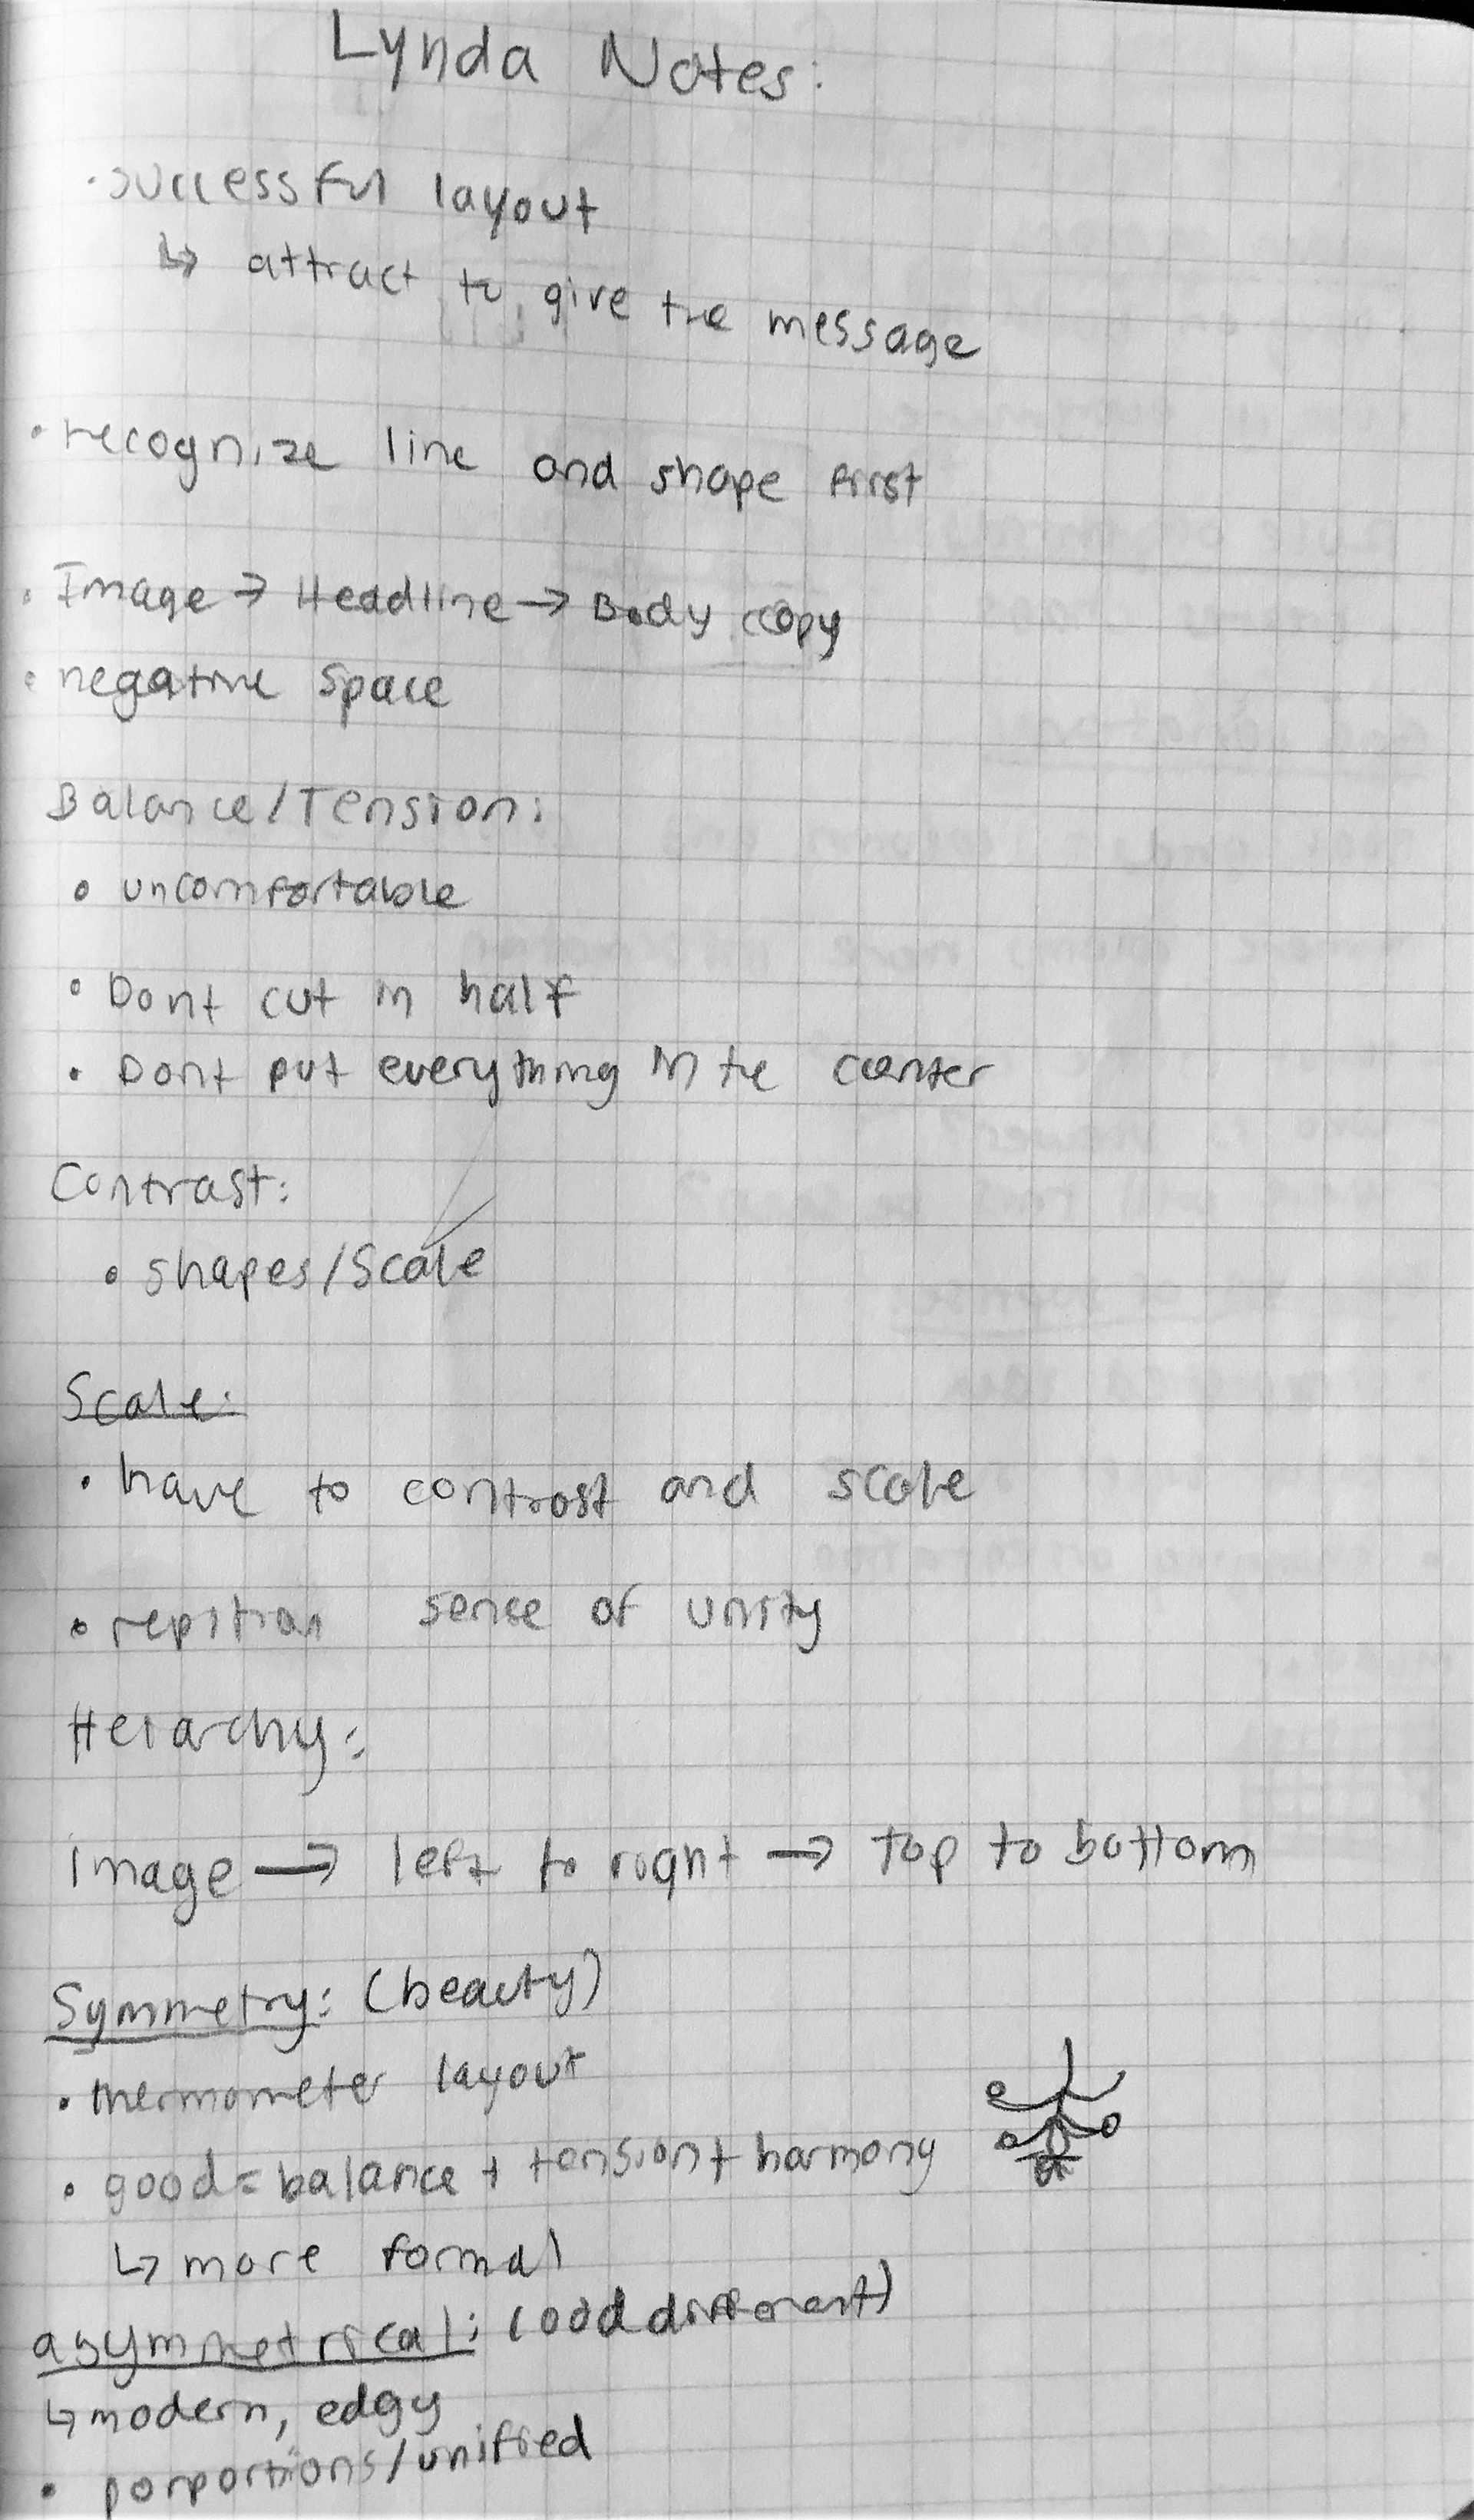 Lynda Notes:
· successful layout
↳ attract to give the message
· recognize line and shape first
· Image → Headline → Body copy
· negative space
Balance/Tension:
• uncomfortable
• Dont cut in half
• Dont put everything in the center
Contrast:
• shapes/Scale
Scale:
• have to contrast and scale
• repition sense of unity
Heiarchy:
Image → left to right → top to bottom
Symmetry: (beauty)
• thermometer layout
• good = balance + tension + harmony
↳ more formal
asymmetrical: (odd different)
↳ modern, edgy
• porportions/unified